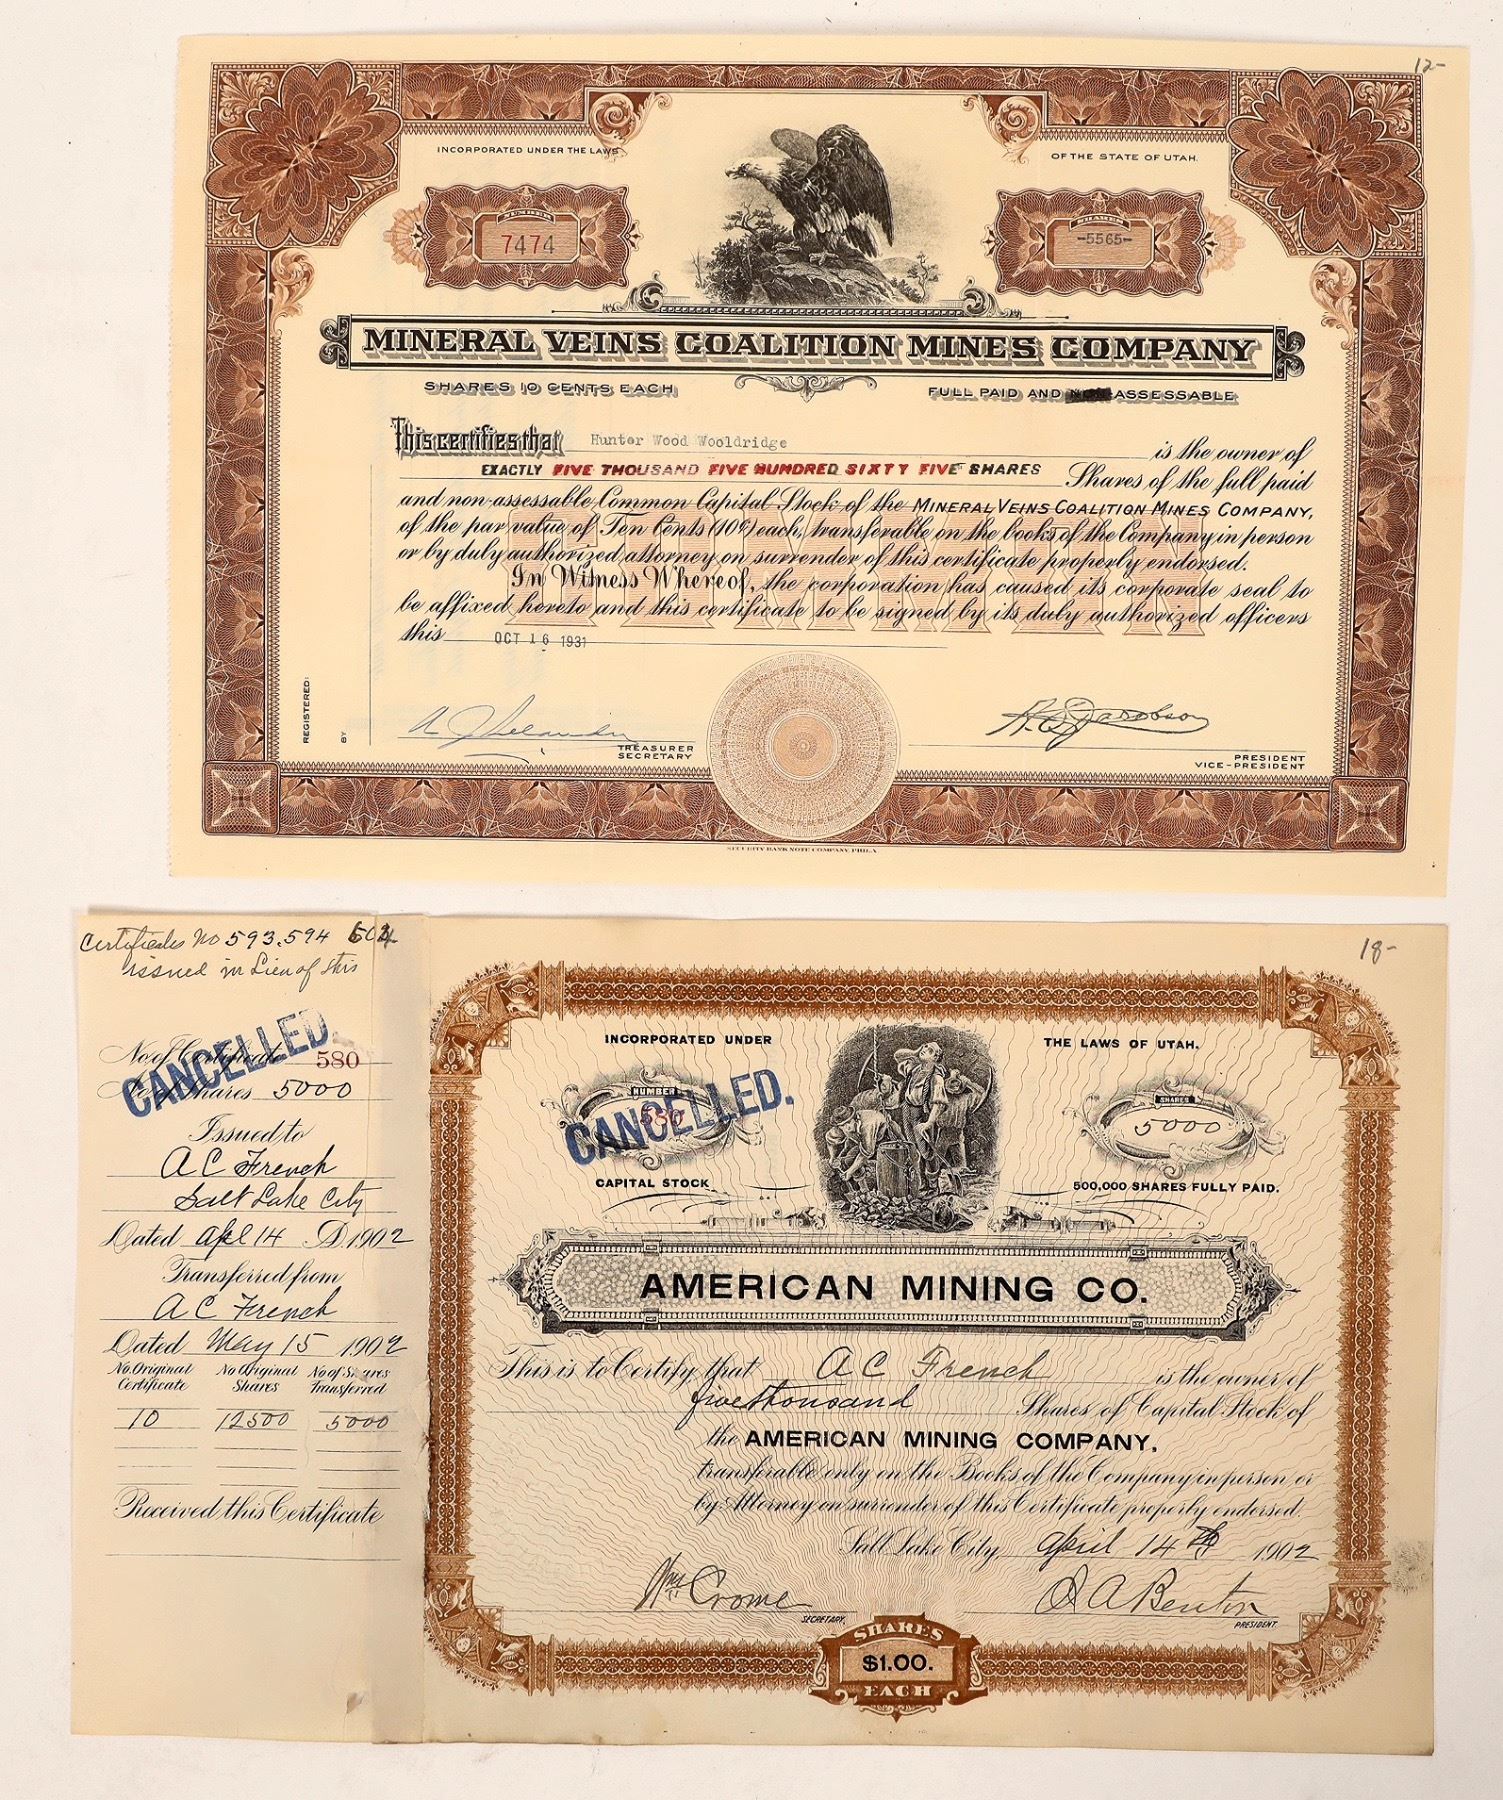 12-
INCORPORATED UNDER THE LAWS
OF THE STATE OF UTAH.
NUMBER
7474
SHARES
-5565-
MINERAL VEINS COALITION MINES COMPANY
SHARES 10 CENTS EACH
FULL PAID AND ASSESSABLE
This certifies that Hunter Wood Wooldridge is the owner of
EXACTLY FIVE THOUSAND FIVE HUNDRED SIXTY FIVE SHARES Shares of the full paid
and non-assessable Common Capital Stock of the MINERAL VEINS COALITION MINES COMPANY,
of the par value of Ten Cents (10¢) each, transferable on the books of the Company in person
or by duly authorized attorney on surrender of this certificate properly endorsed.
In Witness Whereof, the corporation has caused its corporate seal to
be affixed hereto and this certificate to be signed by its duly authorized officers
this OCT 16 1931
REGISTERED:
BY
TREASURER
SECRETARY
Jacobson
PRESIDENT
VICE-PRESIDENT
SECURITY BANK NOTE COMPANY PHILA
Certificates No 593. 594
issued in Lieu of this
CANCELLED.
No of Certificate 580
No of Shares 5000
Issued to
A C French
Salt Lake City
Dated Apl 14 AD 1902
Transferred from
A C French
Dated May 15 1902
No. Original Certificate
No Original Shares
No of Shares Transferred
10 12500 5000
Received this Certificate
18-
INCORPORATED UNDER
THE LAWS OF UTAH.
NUMBER
580
CANCELLED.
SHARES
5000
CAPITAL STOCK
500,000 SHARES FULLY PAID.
AMERICAN MINING CO.
This is to Certify that A C French is the owner of
five thousand Shares of Capital Stock of
the AMERICAN MINING COMPANY,
transferable only on the Books of the Company in person or
by Attorney on surrender of this Certificate properly endorsed.
Salt Lake City, April 14th 1902
Wm Crome
SECRETARY.
A Benton
PRESIDENT.
SHARES
$1.00.
EACH